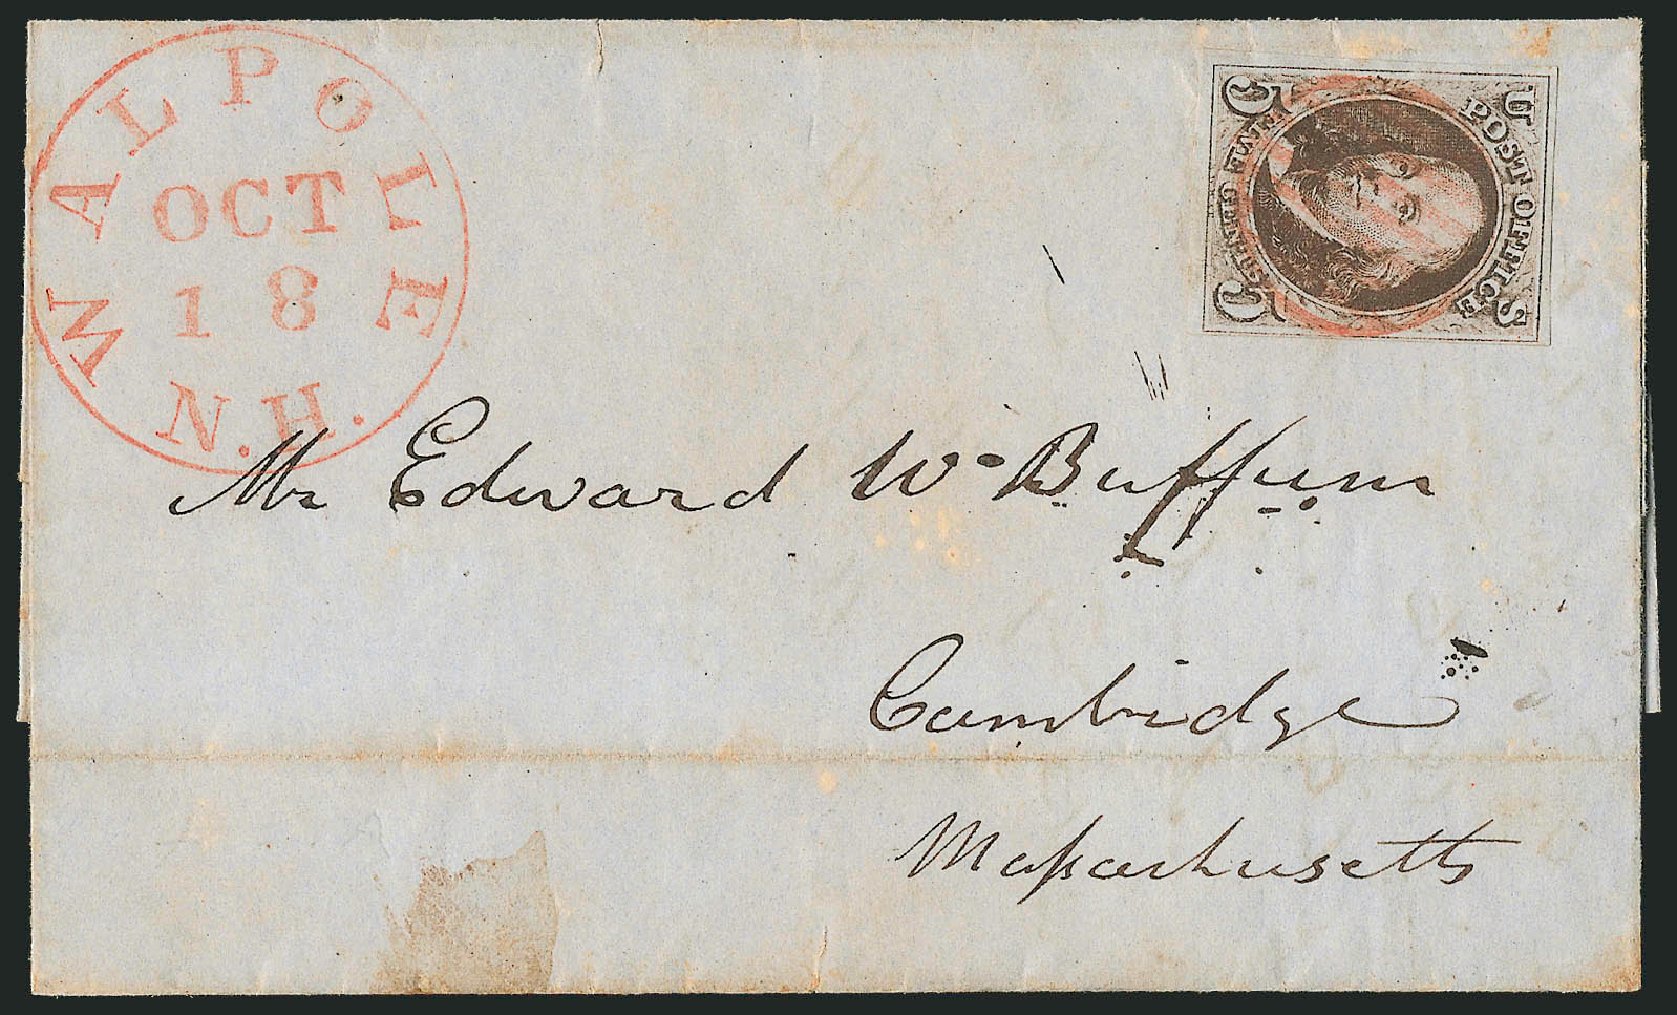 WALPOLE
OCT
18
N.H.
U S
POST OFFICE
5 5
FIVE CENTS
Mr Edward W. Buffum
Cambridge
Massachusetts